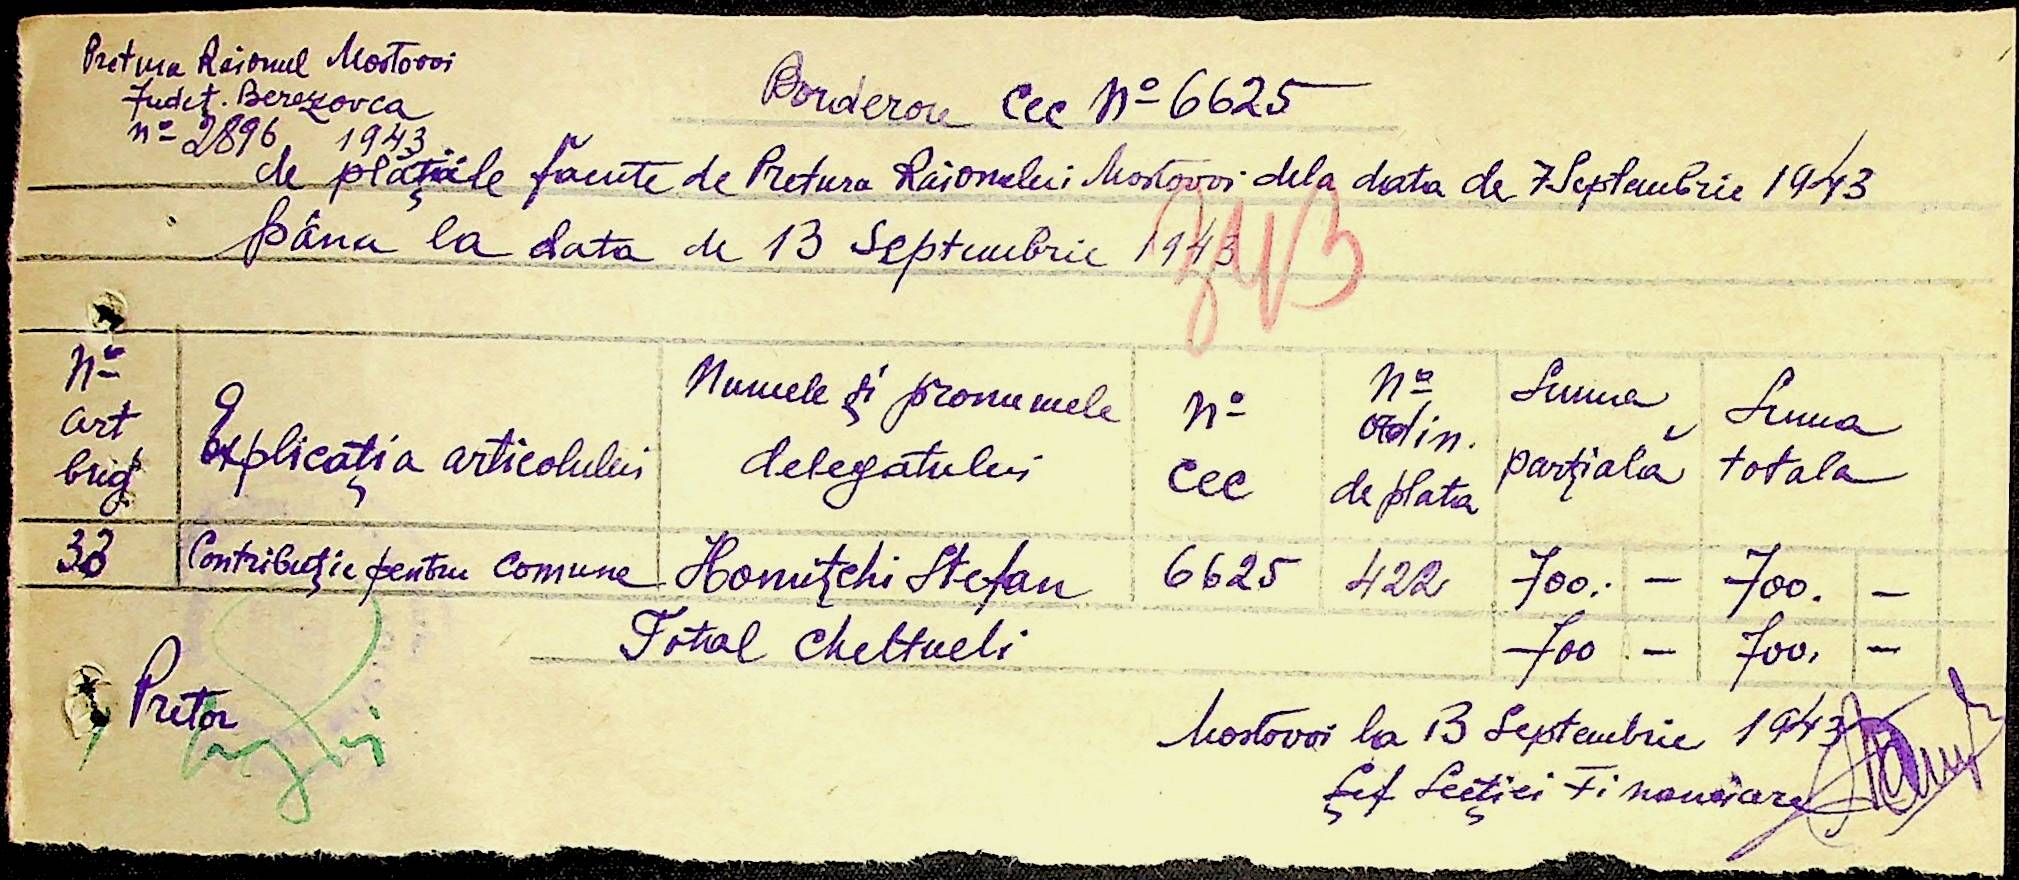 Pretura Raionul Mostovoi
Judeţ. Berezovca
Nº 2896 1943
Borderou Cec Nº 6625
de plăţile făcute de Pretura Raionului Mostovoi dela data de 7 Septembrie 1943
până la data de 13 Septembrie 1943
Nº art bug
Explicaţia articolului
Numele şi pronumele delegatului
Nº cec
Nº ordin. de plata
Suma parţială
Suma totala
33 Contribuţie pentru comune Homiţchi Stefan 6625 422 700. - 700. -
Total cheltueli 700 - 700. -
Pretor
Mostovoi la 13 Septembrie 1943
Şef Secţiei Financiare